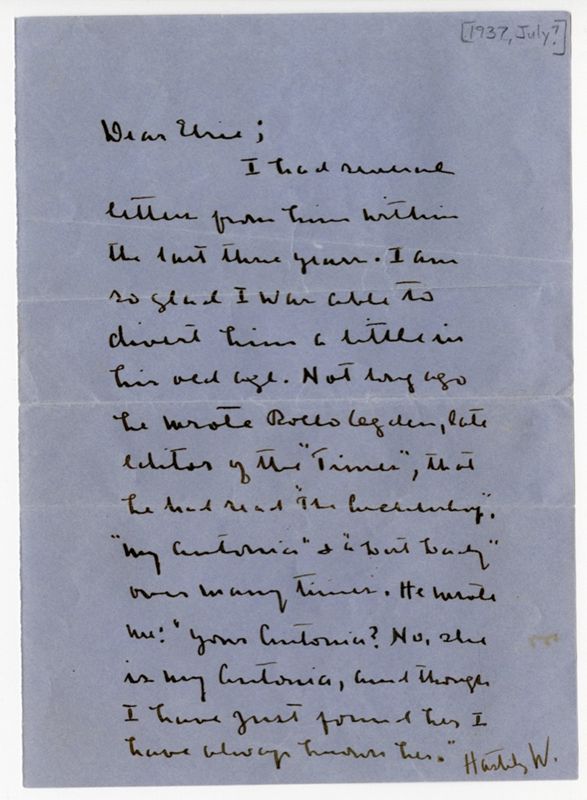 [1937, July?]
Dear Elsie;
I had several
letters from him within
the last three years. I am
so glad I was able to
divert him a little in
his old age. Not long ago
he wrote Rollo Ogden, late
editor of the "Times", that
he had read "The Archbishop",
"My Antonia" & "A Lost Lady"
over many times. He wrote
me: "your Antonia? No, she
is my Antonia, and though
I have just found her I
have always known her."
Hastily W.